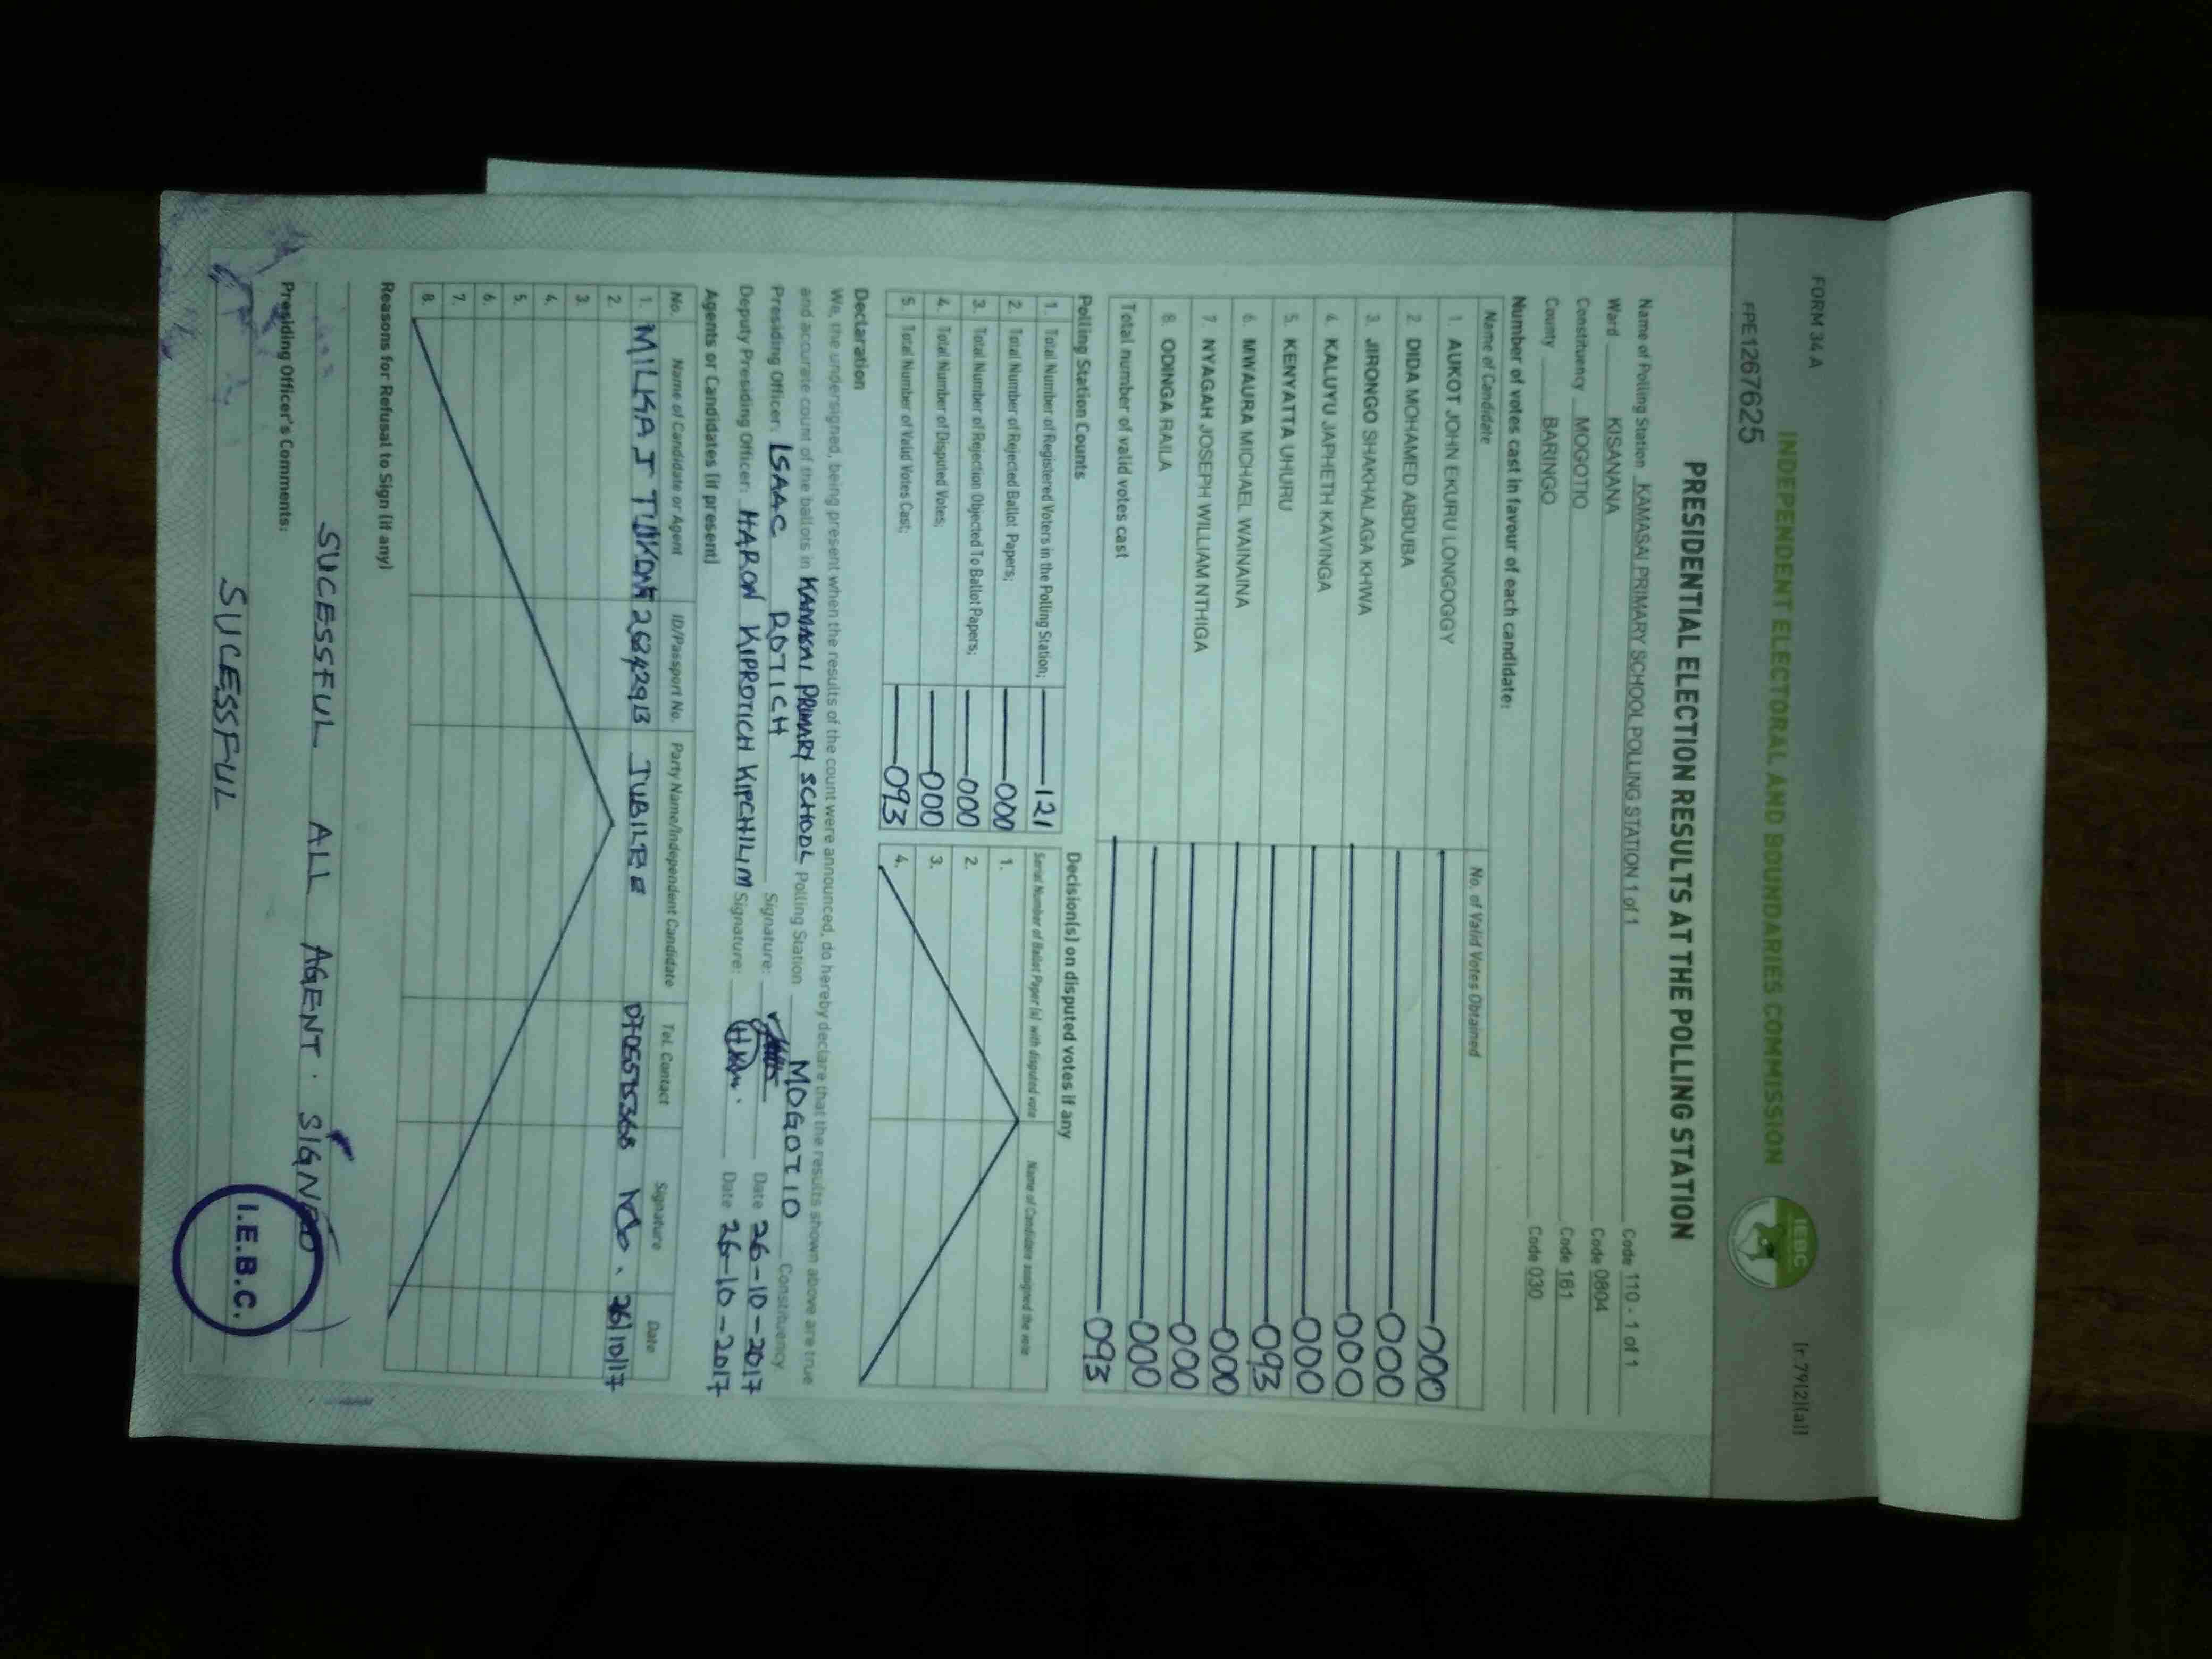 FORM 34 A
[r.79(2)(a)]
INDEPENDENT ELECTORAL AND BOUNDARIES COMMISSION
IEBC
FPE1267625
PRESIDENTIAL ELECTION RESULTS AT THE POLLING STATION
Name of Polling Station KAMASAI PRIMARY SCHOOL POLLING STATION 1 of 1 Code 110 - 1 of 1
Ward KISANANA Code 0804
Constituency MOGOTIO Code 161
County BARINGO Code 030
Number of votes cast in favour of each candidate:
Name of Candidate No. of Valid Votes Obtained
1. AUKOT JOHN EKURU LONGOGGY 000
2. DIDA MOHAMED ABDUBA 000
3. JIRONGO SHAKHALAGA KHWA 000
4. KALUYU JAPHETH KAVINGA 000
5. KENYATTA UHURU 093
6. MWAURA MICHAEL WAINAINA 000
7. NYAGAH JOSEPH WILLIAM NTHIGA 000
8. ODINGA RAILA 000
Total number of valid votes cast 093
Polling Station Counts
1. Total Number of Registered Voters in the Polling Station; 121
2. Total Number of Rejected Ballot Papers; 000
3. Total Number of Rejection Objected To Ballot Papers; 000
4. Total Number of Disputed Votes; 000
5. Total Number of Valid Votes Cast; 093
Decision(s) on disputed votes if any
Serial Number of Ballot Paper (s) with disputed vote Name of Candidate assigned the vote
1.
2.
3.
4.
Declaration
We, the undersigned, being present when the results of the count were announced, do hereby declare that the results shown above are true
and accurate count of the ballots in KAMASAI PRIMARY SCHOOL Polling Station MOGOTIO Constituency
Presiding Officer: ISAAC ROTICH Signature: Date 26-10-2017
Deputy Presiding Officer: HARON KIPROTICH KIPCHILIM Signature: Date 26-10-2017
Agents or Candidates (if present)
No. Name of Candidate or Agent ID/Passport No. Party Name/Independent Candidate Tel. Contact Signature Date
1. MILKA J JUBILEE 26/10/17
2.
3.
4.
5.
6.
7.
8.
Reasons for Refusal to Sign (if any)
SUCESSFUL ALL AGENT. SIGNED
Presiding Officer's Comments:
SUCESSFUL
I.E.B.C.